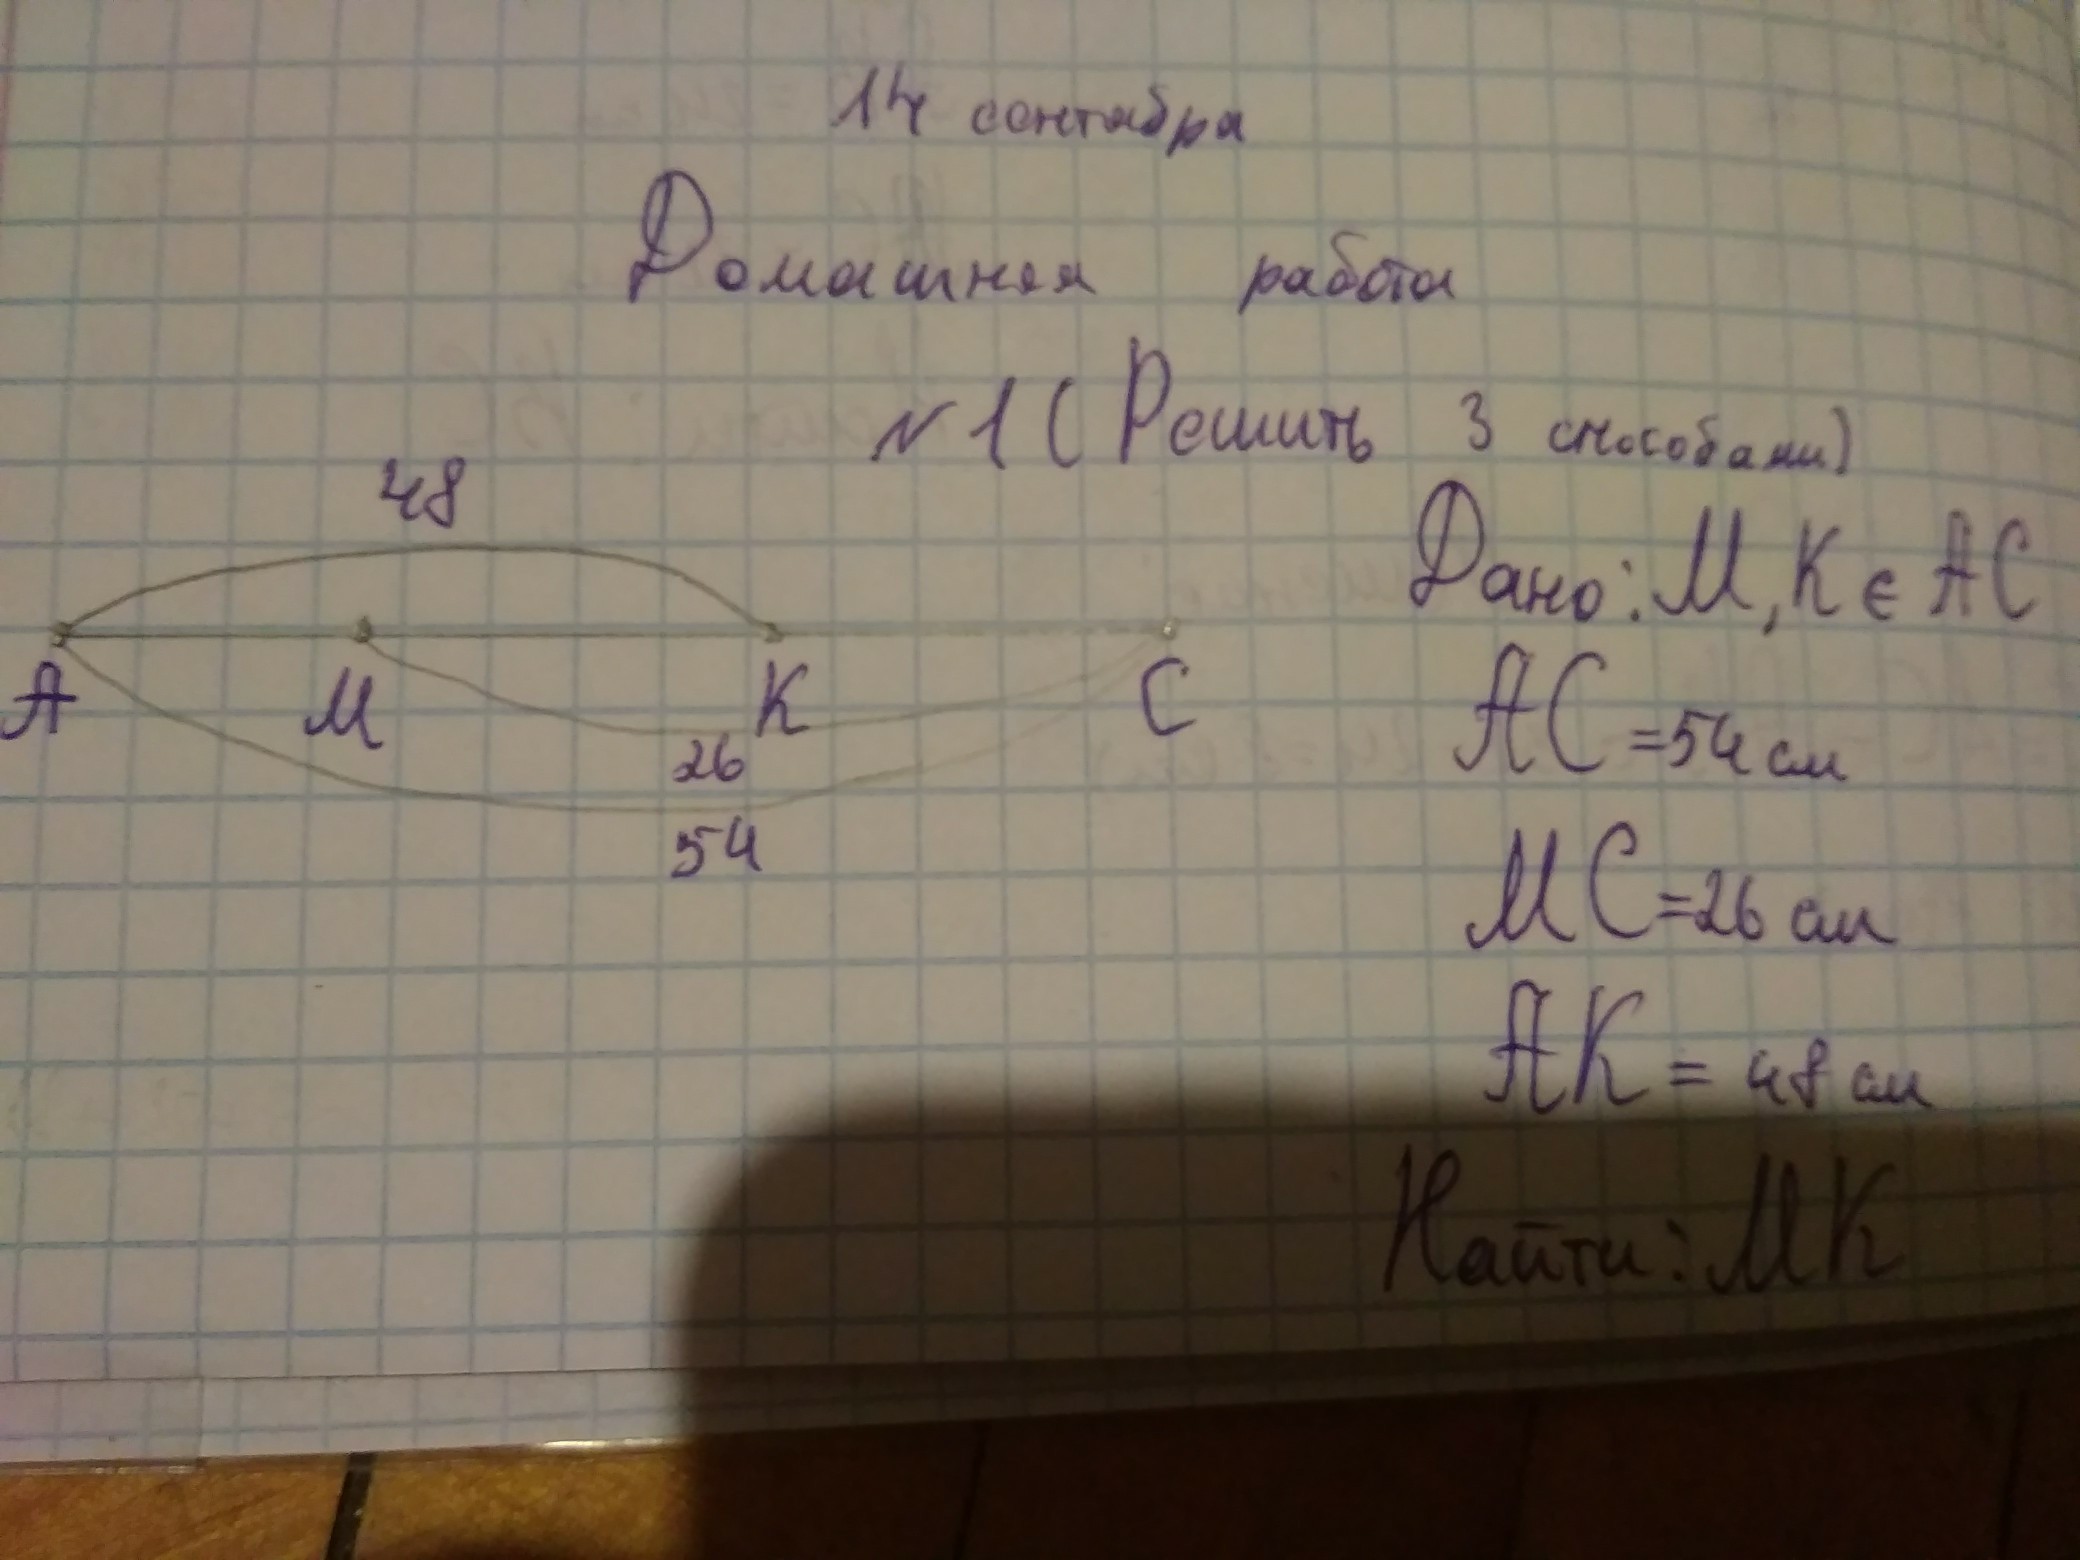 14 сентабра
Домашняя работа
№1 (Решить 3 способами)
48
A M K C
26
54
Дано: M, K ∈ AC
AC = 54 см
MC = 26 см
AK = 48 см
Найти: MK